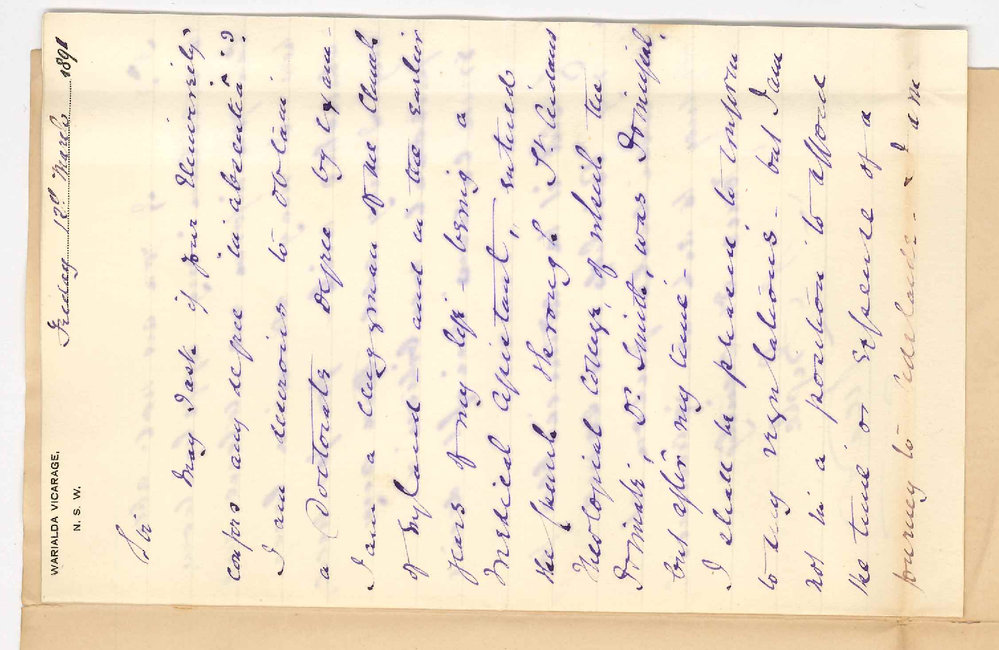 WARIALDA VICARAGE,
N. S. W.
Friday 13th March 1891
Sir
May I ask if your University
confers any degree "in absentia"?
I am desirous to obtain
a Doctorate degree by exam-
I am a clergyman of the Church
of England - and in the earlier
years of my life - being a
Medical Assistant, entered
the Church through St Aidans
Theological College, of which the
Primate, Dr. Smith, was Principal,
but after my time -
I shall be pleased to conform
to any regulations - but I am
not in a position to afford
the time or expense of a
journey to Adelaide - I am